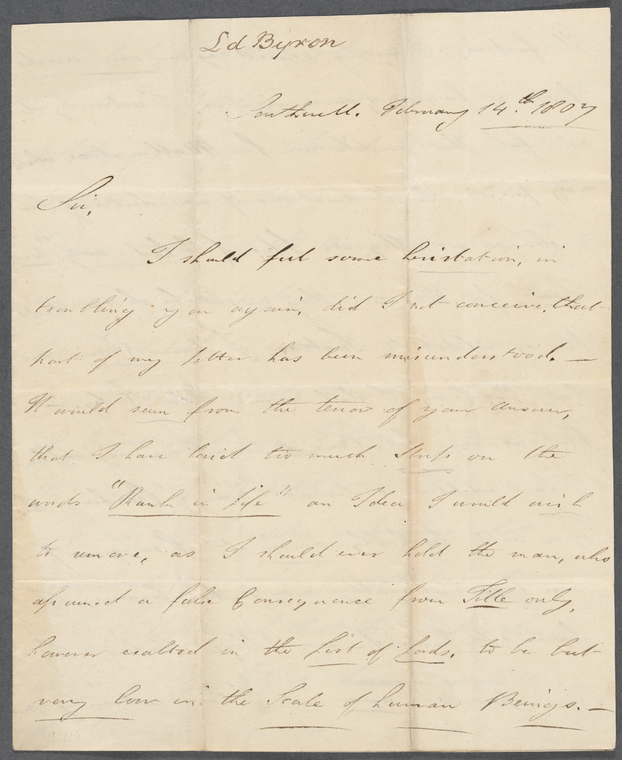 Ld Byron
Southwell. February 14th. 1807
Sir,
I should feel some hesitation, in
troubling you again, did I not conceive, that
part of my letter has been misunderstood. —
It would seem from the tenor of your answer,
that I have laid too much stress on the
words "Rank in Life" an Idea I would wish
to remove, as I should ever hold the man, who
assumed a false Consequence from Title only,
however exalted in the List of Lords. to be but
very low in the Scale of human Beings. —